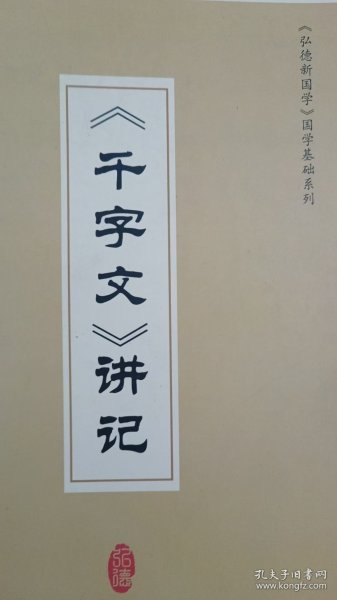 《弘德新国学》国学基础系列
《千字文》讲记
弘德
孔夫子旧书网
www.kongfz.com